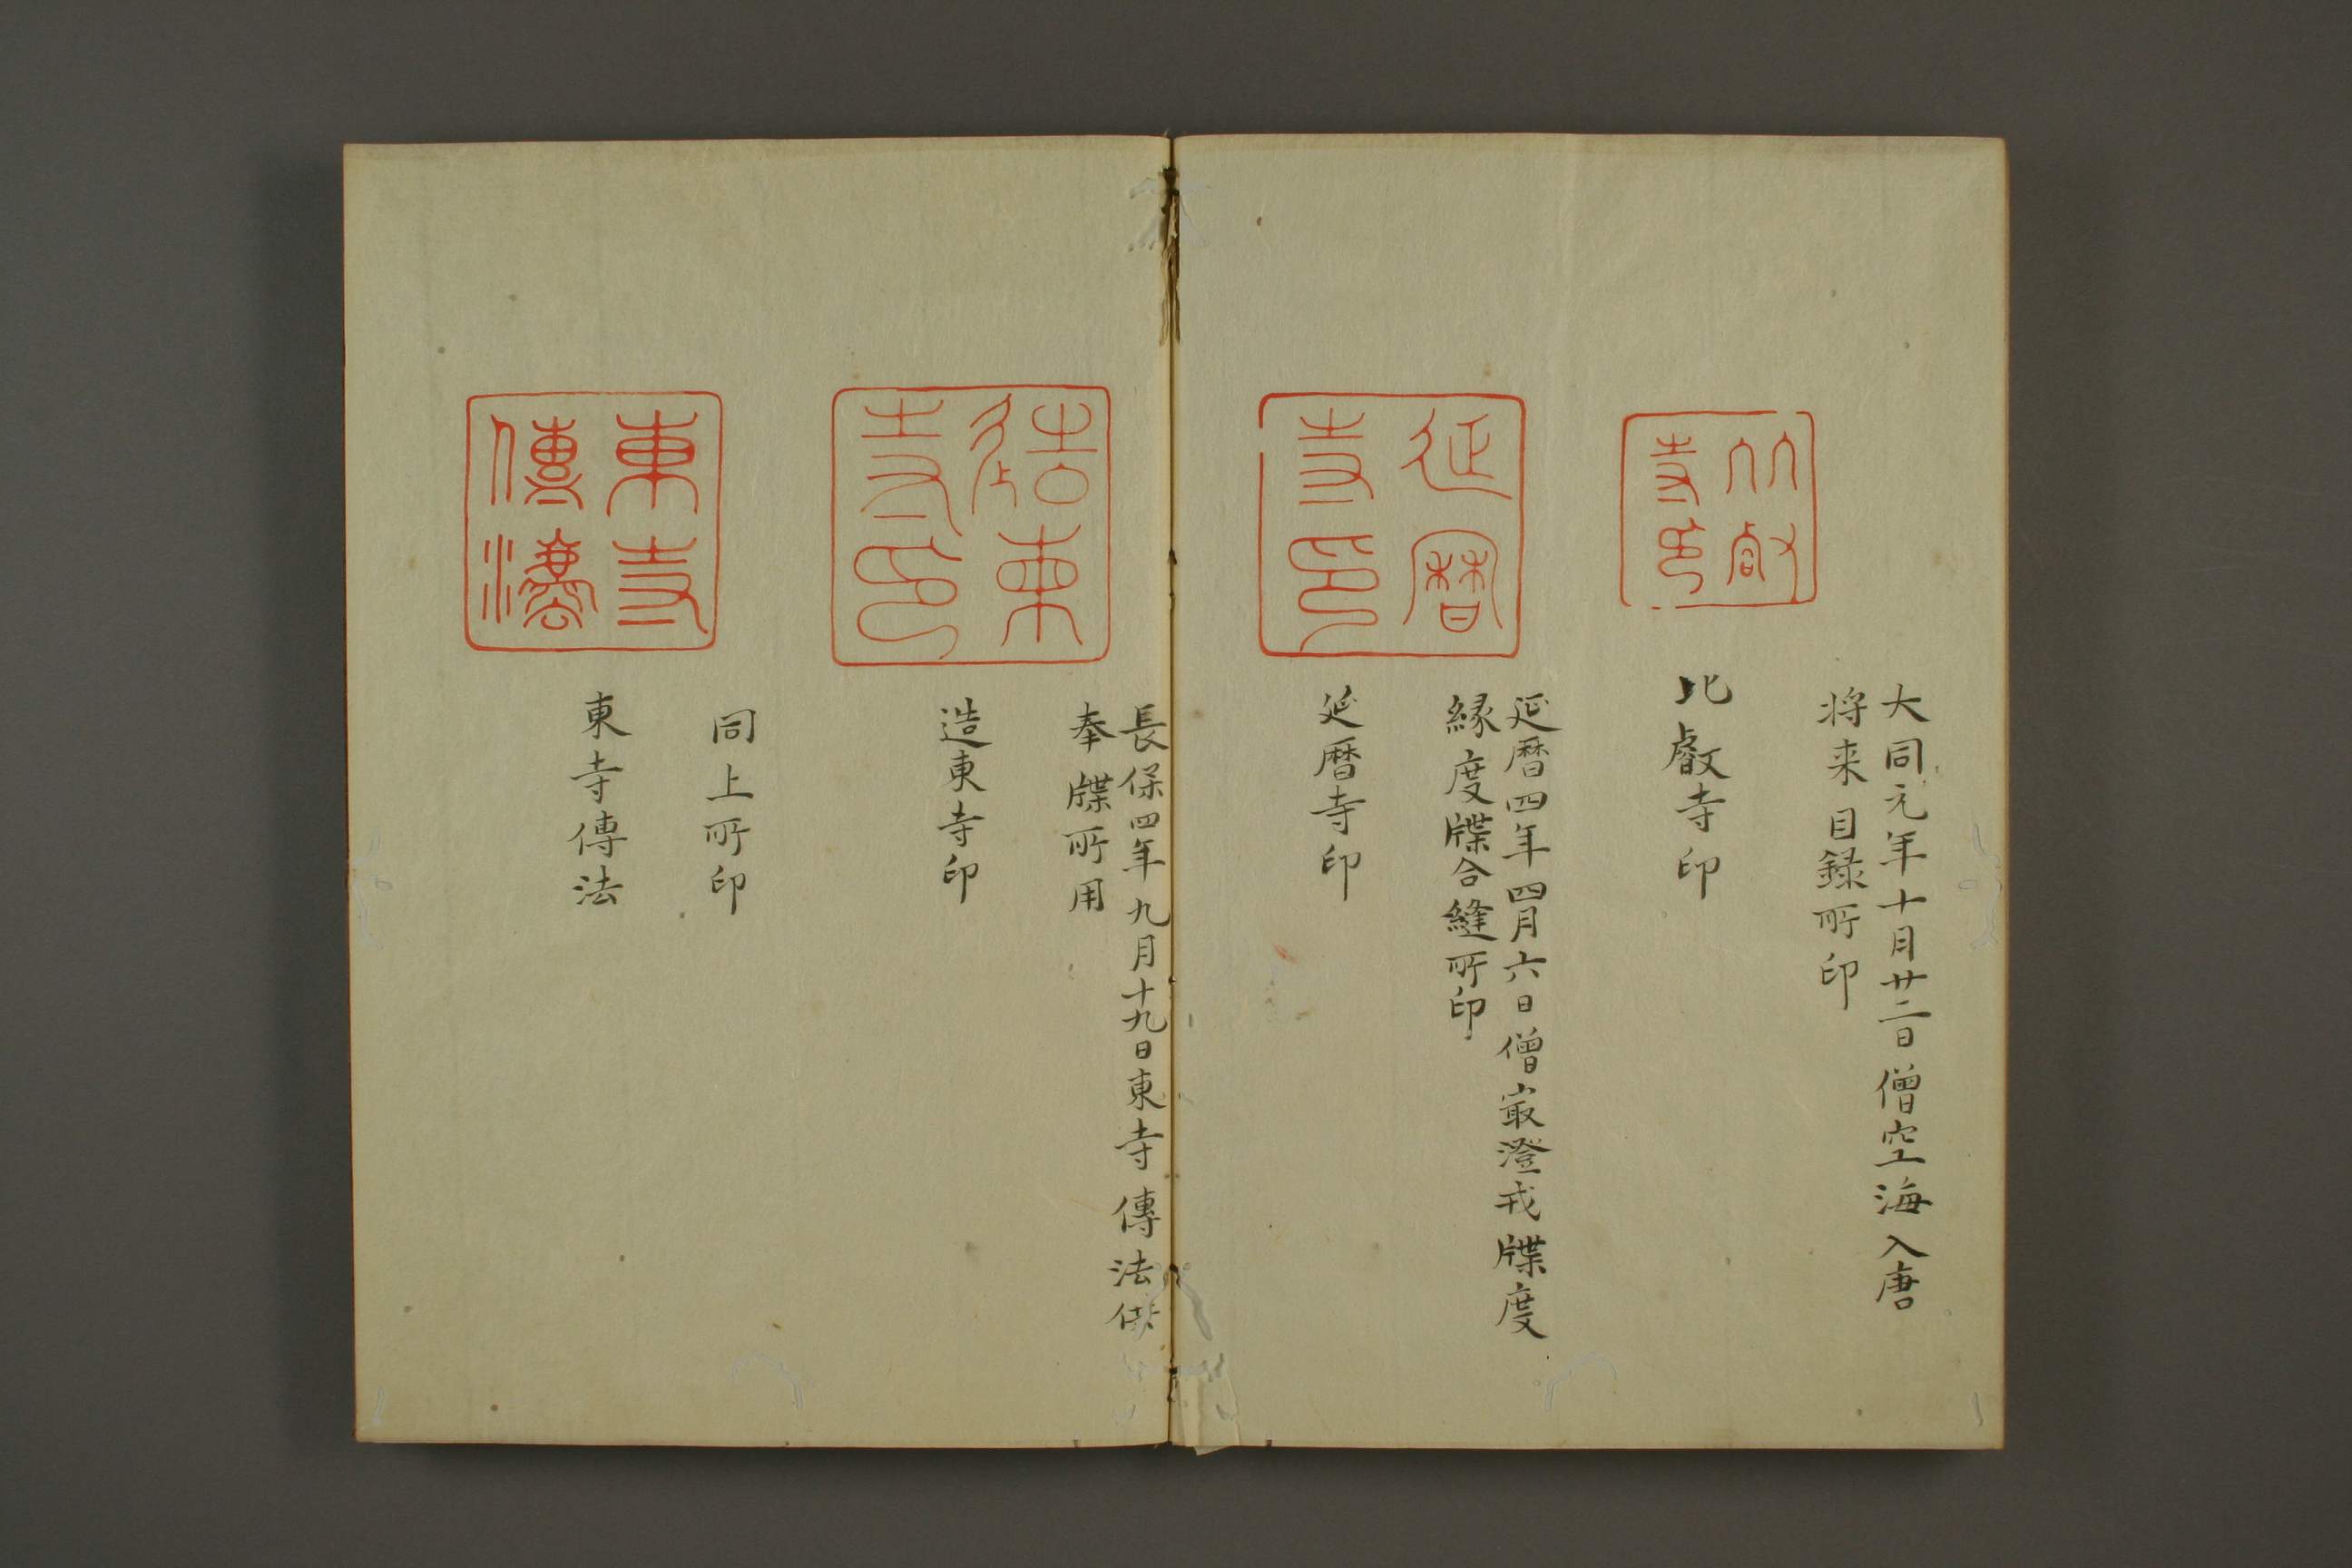 大同元年十月廿二日僧空海入唐
将来目録所印
比叡寺印
比叡寺印
延暦四年四月六日僧㝡澄戒牒度
縁度牒合縫所印
延暦寺印
延暦寺印
長保四年九月十九日東寺傳法供
奉牒所用
造東寺印
造東寺印
同上所印
東寺傳法
東寺傳法